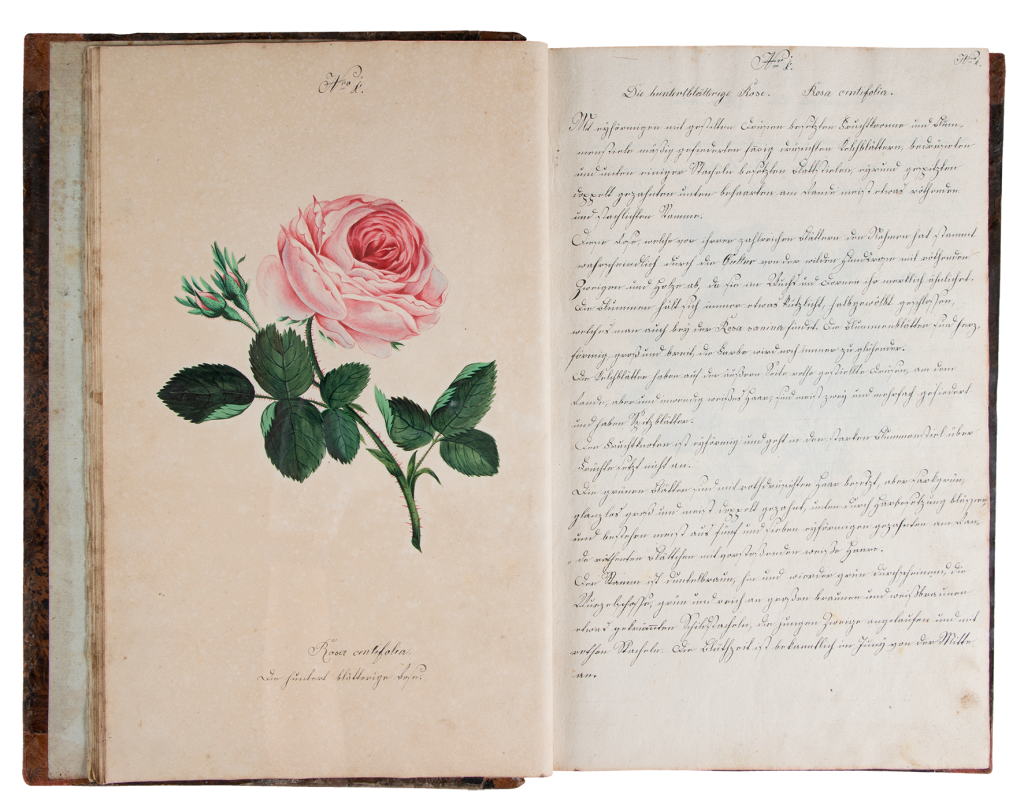 Nro 1.
Rosa centifolia.
Die hundert blätterige Rose.
Nro 1.
Nro 1.
Die hundertblätterige Rose. Rosa centifolia.
Mit eyförmigen mit gestielten Drüsen besetzten Fruchtknoten und Blum-
menstiele mäßig gefiederten färbig drüsichten Kelchblättern, bedrüseten
und unten einiger Stacheln besetzten Blattstielen, eyrund gespitzten
doppelt gezahnten unten behaarten am Rande meist etwas röthenden
und stachlichten Stamme.
Diese Rose, welche von ihrer zahlreichen Blättern den Nahmen hat stammt
wahrscheindlich durch die Cultur von der wilden Hundsrose mit röthenden
Zweigen und Holze ab, da sie im Wuchs und Dornen ihr merklich ähnlichet.
Die Blumme hält sich immer etwas kützlicht, halbgewölbt geschlossen,
welches man auch bey der Rosa canina findet. Die Blummenblätter sind herz-
förmig groß und breit, die Farbe wird noch immer zu glühender.
Die Kelchblätter haben auf der äußern Seite rothe gestielte Drüsen, an dem
Rande, aber und inwendig weißes Haar, sind meist zwey und mehrfach gefiedert
und haben Spitzblätter.
Der Fruchtknoten ist eyförmig und geht in den starken Blummenstiel über
Früchte setzt nicht an.
Die grünen Blätter sind mit rothdrüsichten Haar besetzt, aber sattgrün,
glanzlos groß und meist doppelt gezahnt, unten durch Haarbesetzung blässer
und bestehen meist aus fünf und sieben eyförmigen gezahnten am Ran-
de röthenten Blättchen mit vorstehenden weiße Haare.
Der Stamm ist dunkelbraun, hin und wieder grün durchscheinend, die
Wurzelschosse, grün und reich an großen braunen und weißbraunen
etwas gekrümten Schildstacheln, die jungen Zweige angelaufen und mit
rothen Stacheln. Die Blüthzeit ist bekanntlich im Juny von der Mitte
an.